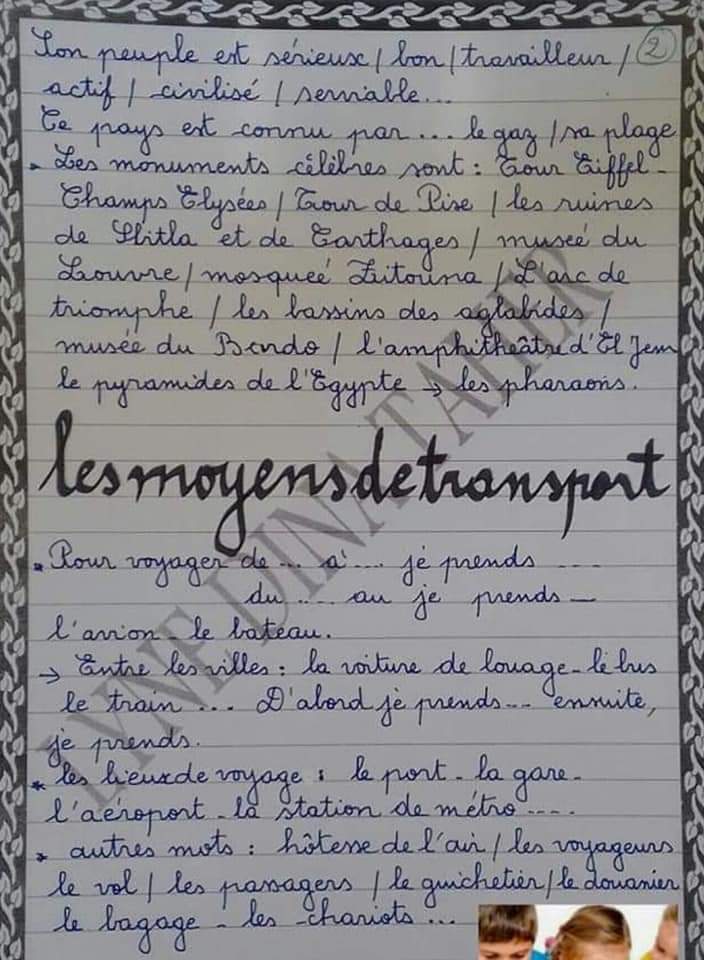 Son peuple est sérieux / bon / travailleur / 2
actif / civilisé / serviable...
Ce pays est connu par... le gaz / sa plage
Les monuments célèbres sont : Tour Eiffel -
Champs Elysées / Tour de Pise / les ruines
de Sbitla et de Carthages / museé du
Louvre / mosqueé Zeitouna / L'arc de
triomphe / les bassins des aglabides /
musée du Bardo / l'amphithéâtre d'El Jem
le pyramides de l'Egypte → les pharaons.
les moyens de transport
* Pour voyager de ... à .... je prends ....
du .... au je prends —
l'avion - le bateau.
→ Entre les villes : la voiture de louage - le bus
le train ... D'abord je prends... ensuite,
je prends.
* les lieux de voyage : le port - la gare -
l'aéroport - la station de métro ....
* autres mots : hôtesse de l'air / les voyageurs
le vol / les passagers / le guichetier / le douanier
le bagage - les chariots ...
LYNE DINA TAHER